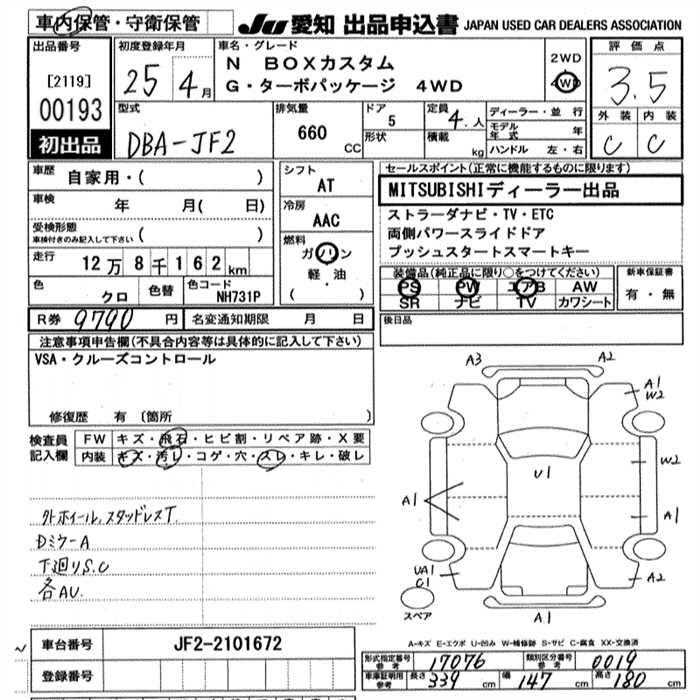 車内保管・守衛保管
JU 愛知 出品申込書 JAPAN USED CAR DEALERS ASSOCIATION
出品番号
[2119]
00193
初出品
初度登録年月
25 4月
車名・グレード
N BOXカスタム
G・ターボパッケージ 4WD
2WD
4WD
評価点
3.5
外装 内装
C C
型式
DBA-JF2
排気量
660
CC
ドア
5
形状
定員
4.人
積載
kg
ディーラー・並行
モデル年式 年
ハンドル 左・右
車歴
自家用・( )
車検
年 月( 日)
受検形態
車検付きのみ記入して下さい ( )
走行
12万8千162km
色
クロ
色替
色コード
NH731P
シフト
AT
冷房
AAC
燃料
ガソリン
軽・油
( )
セールスポイント(正常に機能するものに限ります)
MITSUBISHIディーラー出品
ストラーダナビ・TV・ETC
両側パワースライドドア
プッシュスタートスマートキー
装備品(純正品に限り○をつけてください)
PS PW エアB AW
SR ナビ TV カワシート
新車保証書
有・無
R券 9790 円
名変通知期限 月 日
後日品
注意事項申告欄(不具合内容等は具体的に記入して下さい)
VSA・クルーズコントロール
修復歴 有 〔箇所 〕
検査員記入欄
FW キズ・飛石・ヒビ割・リペア跡・X要
内装 キズ・汚レ・コゲ・穴・スレ・キレ・破レ
外ホイール,スタッドレスT
DミラーA
下廻りS.C
各AU.
A3
A2
A1
W2
W2
U1
A1
A1
UA1
C1
A2
A1
スペア
A-キズ E-エクボ U-凹み W-補修跡 S-サビ C-腐食 XX-交換済
車台番号 JF2-2101672
登録番号
形式指定番号参考 17076
類別区分番号参考 0019
車庫証明用参考 長さ 339 cm 幅 147 cm 高さ 180 cm